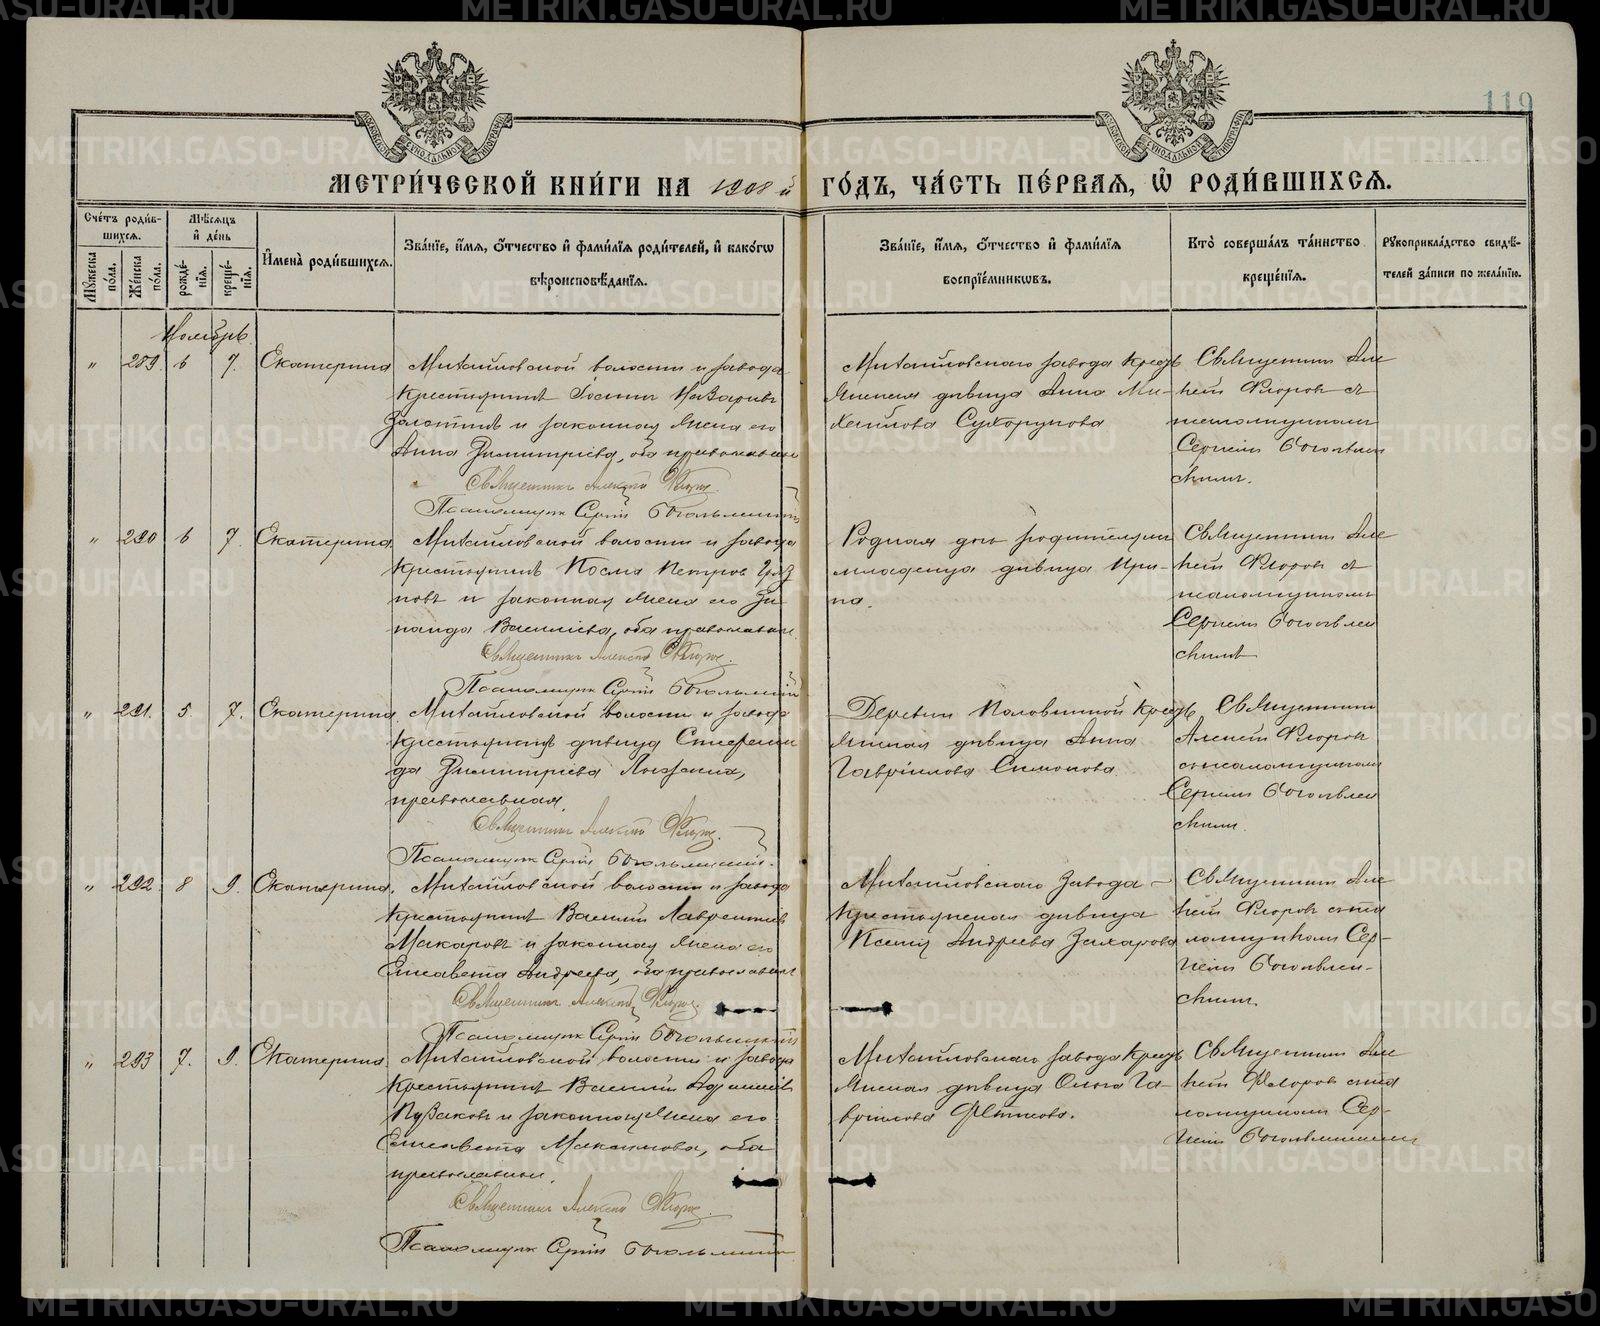 119
МЕТРИЧЕСКОЙ КНИГИ НА 1908 й ГОДЪ, ЧАСТЬ ПЕРВАЯ, Ѡ РОДИВШИХСЯ.
Счетъ родившихся.
Мужеска пола.
Женска пола.
Мѣсяцъ и день
рожденія.
крещенія.
Имена родившихся.
Званіе, имя, отчество и фамилія родителей, и какогѡ
вѣроисповѣданія.
Званіе, имя, отчество и фамилія
воспріемниковъ.
Кто совершалъ таинство
крещенія.
Рукоприкладство свидѣ-
телей записи по желанію.
Ноябрь
" 289. 6 7. Екатерина
Михайловской волости и завода
крестьянинъ Іосифъ Назаровъ
Золотинъ и законная жена его
Анна Димитріева, оба православные
Священникъ Алексѣй Флоровъ
Псаломщикъ Сергій Богоявленскій
Михайловскаго завода крестъ
янская дѣвица Анна Ми-
хаилова Сухорукова
Священникъ Але
ксѣй Флоровъ съ
псаломщикомъ
Сергіемъ Богоявлен
скимъ.
" 290 6 7. Екатерина.
Михайловской волости и завода
крестьянинъ Косма Петровъ
новъ и законная жена его Зи-
наида Василіева, оба православные.
Священникъ Алексѣй Флоровъ.
Псаломщикъ Сергій Богоявленскій
Родная дочь родителей
младенца дѣвица Ири-
на.
Священникъ Але
ксѣй Флоровъ съ
псаломщикомъ
Сергіемъ Богоявлен
скимъ
" 291. 5. 7. Екатерина.
Михайловской волости и завода
крестьянская дѣвица Степани
да Димитріева
православная.
Священникъ Алексѣй Флоровъ.
Псаломщикъ Сергій Богоявленскій.
Деревни Половинной крестъ
янская дѣвица Анна
Гавріилова Симонова.
Священникъ
Алексѣй Флоровъ
съ псаломщикомъ
Сергіемъ Богоявлен
скимъ.
" 292. 8 9. Екатерина.
Михайловской волости и завода
крестьянинъ Василій Лаврентіевъ
Макаровъ и законная жена его
Елисавета Андреева, оба православные
Священникъ Алексѣй Флоровъ.
Псаломщикъ Сергій Богоявленскій
Михайловскаго завода –
крестьянская дѣвица
Ксенія Андреева Захарова
Священникъ Але
ксѣй Флоровъ съ пса
ломщикомъ Сер-
гіемъ Богоявлен-
скимъ.
" 293 7. 9. Екатерина.
Михайловской волости и завода
крестьянинъ Василій
Пузаковъ и законная жена его
Елисавета Максимова, оба
православные.
Священникъ Алексѣй Флоровъ.
Псаломщикъ Сергій Богоявленскій
Михайловскаго завода крестъ
янская дѣвица Ольга Га-
вріилова Фетисова.
Священникъ Але
ксѣй Флоровъ съ пса
ломщикомъ Сер-
гіемъ Богоявленскимъ
METRIKI.GASO-URAL.RU